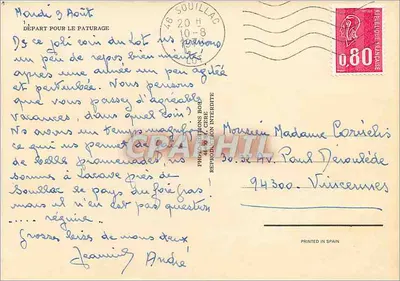 Mardi 9 Août
DÉPART POUR LE PATURAGE
De ce joli coin du Lot ns prenons
un peu de repos bien mérité
après une année un peu agitée
et perturbée. Nous pensons
que vous passez d'agréables
vacances, dans quel coin?
Ns avons un temps magnifique
ce qui ns permet de
de belles promenades.
sommes à Lacave près de
Souillac le pays du foie gras
mais il n'en est pas question
..... régime..
Grosses bises de nous deux
Jeannine André
46 SOUILLAC
20 H
10-8
LOT
REPUBLIQUE FRANCAISE
0,80
REPRODUCTION INTERDITE
CPAPHIL
Monsieur Madame Cornélis
30, av. Paul Déroulède
94300. Vincennes
PRINTED IN SPAIN